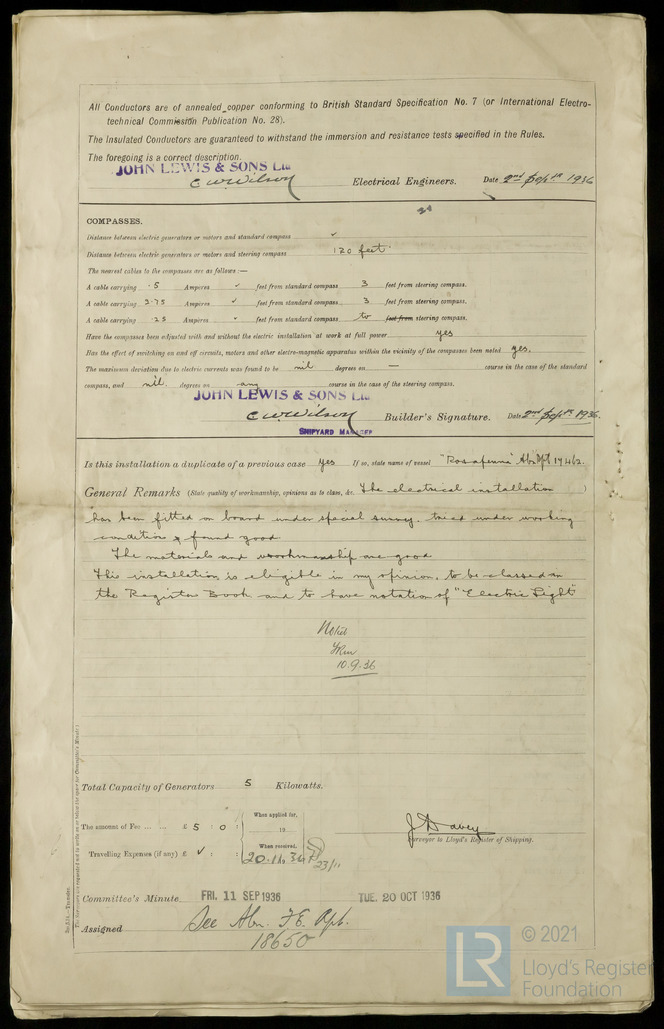 All Conductors are of annealed copper conforming to British Standard Specification No. 7 (or International Electro-
technical Commission Publication No. 28).
The Insulated Conductors are guaranteed to withstand the immersion and resistance tests specified in the Rules.
The foregoing is a correct description.
JOHN LEWIS & SONS Ltd
C W Wilson Electrical Engineers. Date 2nd Septr 1936
COMPASSES.
Distance between electric generators or motors and standard compass ✓
Distance between electric generators or motors and steering compass 120 feet
The nearest cables to the compasses are as follows:—
A cable carrying .5 Amperes ✓ feet from standard compass 3 feet from steering compass.
A cable carrying 2.75 Amperes ✓ feet from standard compass 3 feet from steering compass.
A cable carrying .25 Amperes ✓ feet from standard compass to feet from steering compass.
Have the compasses been adjusted with and without the electric installation at work at full power yes
Has the effect of switching on and off circuits, motors and other electro-magnetic apparatus within the vicinity of the compasses been noted yes.
The maximum deviation due to electric currents was found to be nil degrees on — course in the case of the standard
compass, and nil degrees on any course in the case of the steering compass.
JOHN LEWIS & SONS Ltd
C W Wilson Builder's Signature. Date 2nd Septr 1936.
SHIPYARD MANAGER
Is this installation a duplicate of a previous case yes If so, state name of vessel "Rosafenna" Abn Rpt 17462.
General Remarks (State quality of workmanship, opinions as to class, &c. The electrical installation )
has been fitted on board under special survey, tried under working
condition & found good
The materials and workmanship are good.
This installation is eligible in my opinion, to be classed in
the Register Book and to have notation of "Electric Light"
Noted
10.9.36
Total Capacity of Generators 5 Kilowatts.
The amount of Fee ... ... £ 5 : 0 :
When applied for,
19
Travelling Expenses (if any) £ ✓ : :
When received,
20.11.36
23/11
J Davey
Surveyor to Lloyd's Register of Shipping.
Committee's Minute FRI. 11 SEP 1936 TUE. 20 OCT 1936
Assigned See Abn. F.E. Rpt.
18650
LR
© 2021
Lloyd's Register
Foundation